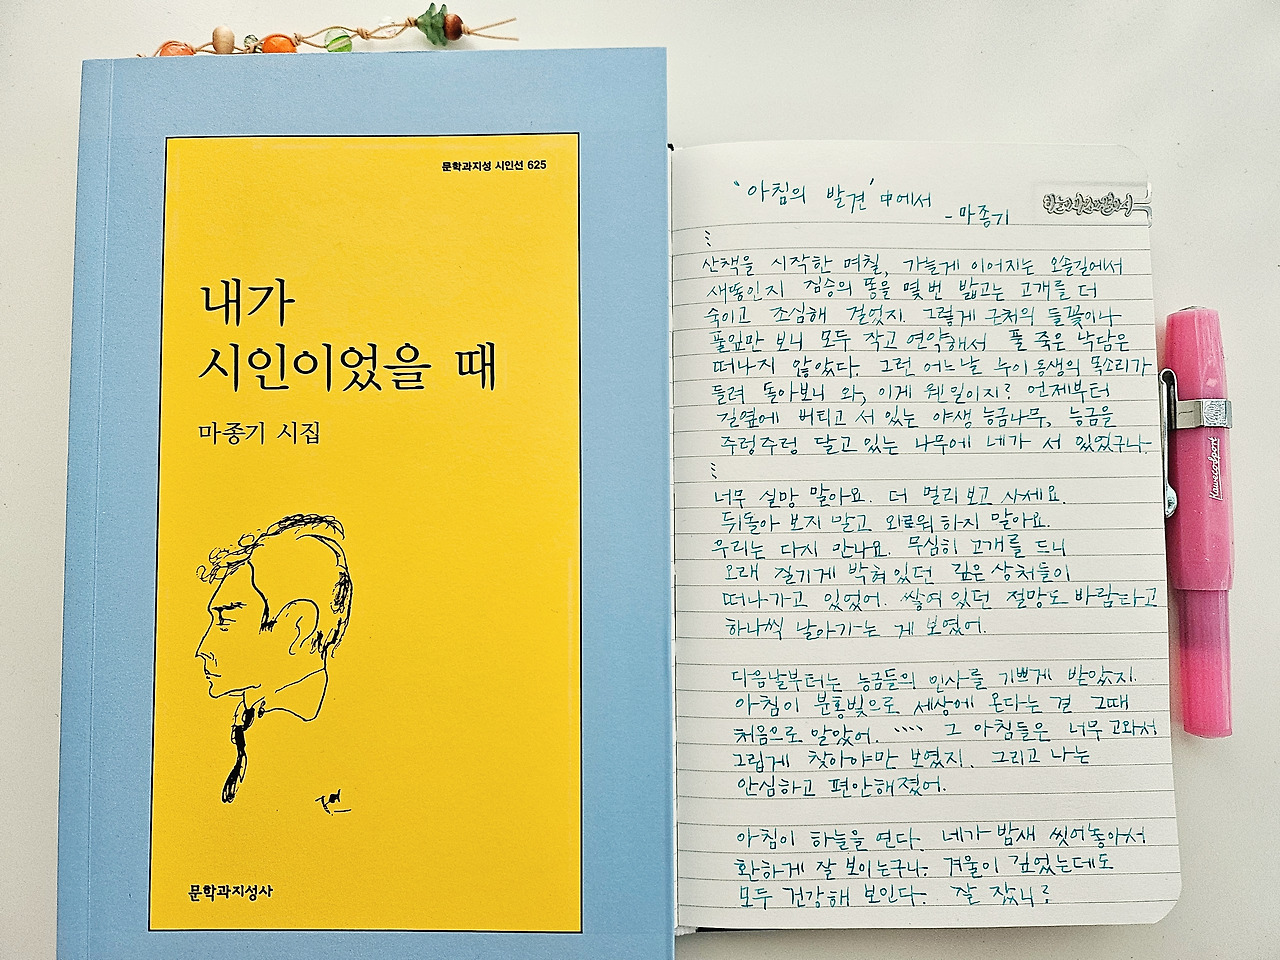 문학과지성 시인선 625
내가
시인이었을 때
마종기 시집
문학과지성사
"아침의 발견" 中에서
- 마종기
산책을 시작한 며칠, 가늘게 이어지는 오솔길에서
새똥인지 짐승의 똥을 몇 번 밟고는 고개를 더
숙이고 조심해 걸었지. 그렇게 근처의 들꽃이나
풀잎만 보니 모두 작고 연약해서 풀 죽은 낙담은
떠나지 않았다. 그런 어느날 누이동생의 목소리가
들려 돌아보니 와, 이게 웬일이지? 언제부터
길옆에 버티고 서 있는 야생 능금나무, 능금을
주렁주렁 달고 있는 나무에 네가 서 있었구나.
너무 실망 말아요. 더 멀리 보고 사세요.
뒤돌아 보지 말고 외로워 하지 말아요.
우리는 다시 만나요. 무심히 고개를 드니
오래 질기게 박혀 있던 깊은 상처들이
떠나가고 있었어. 쌓여 있던 절망도 바람타고
하나씩 날아가는 게 보였어.
다음날부터는 능금들의 인사를 기쁘게 받았지.
아침이 분홍빛으로 세상에 온다는 걸 그때
처음으로 알았어. .... 그 아침들은 너무 고와서
그립게 찾아야만 보였지. 그리고 나는
안심하고 편안해졌어.
아침이 하늘을 연다. 네가 밤새 씻어놓아서
환하게 잘 보이는구나. 겨울이 깊었는데도
모두 건강해 보인다. 잘 잤니?
Kawecosport